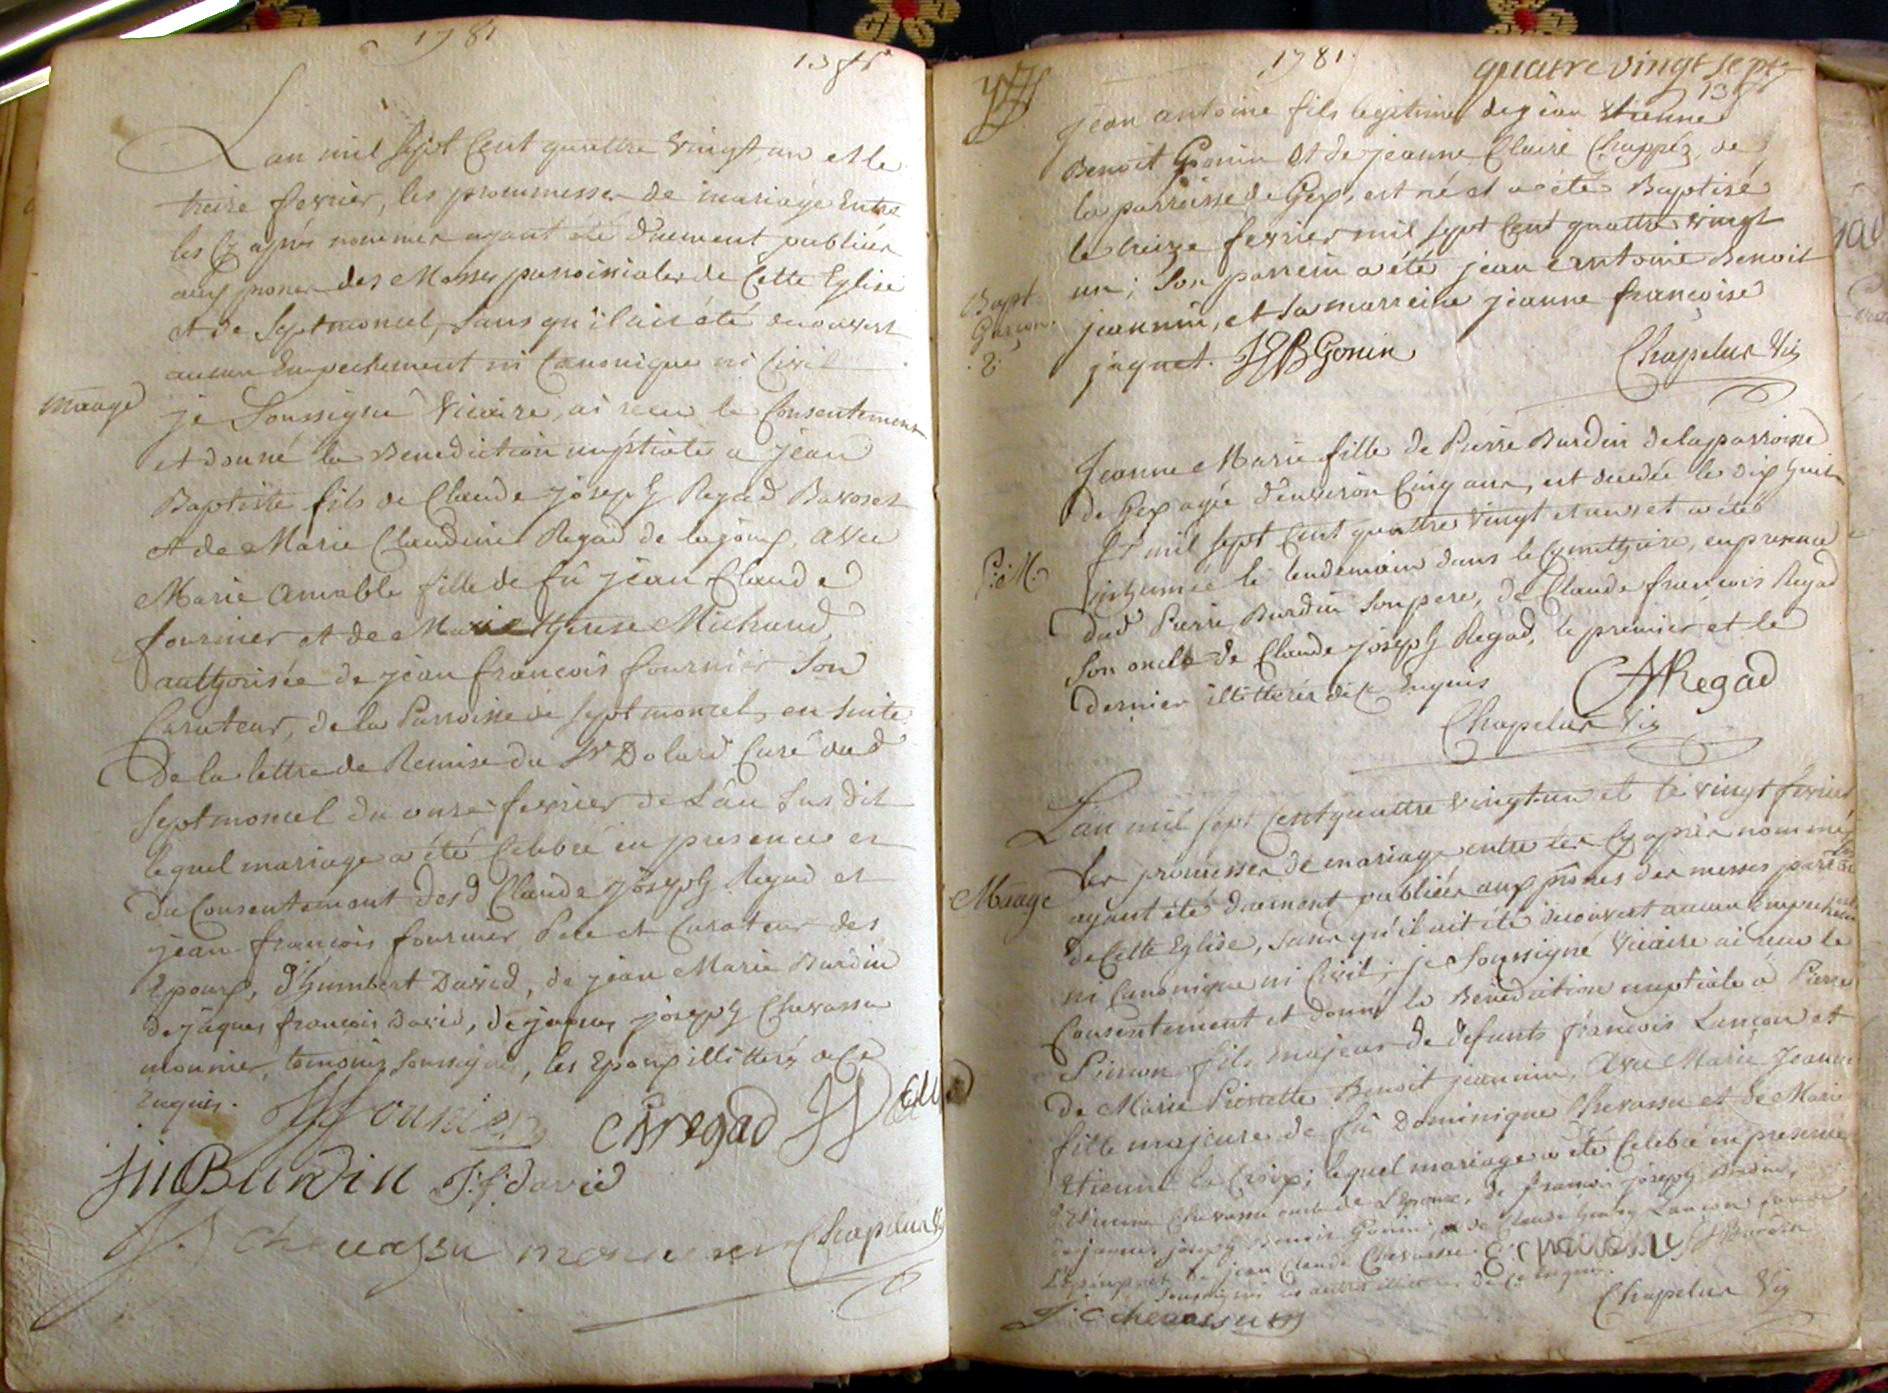 1781
L'an mil sept Cent quattre vingt un et le
treize fevrier, les prommesses de mariage Entre
les Cy après nommés ayant été duement publiées
aux prones des Messes paroissiales de Cette Eglise
et de Septmoncel, sans qu'il ait été decouvert
aucun Empechement ni Canonique ni Civil
Mãage
je Soussigné Vicaire, ai recu le Consentement
et donné la Benediction nuptiale a jean
Baptiste fils de Claude joseph Regad Baroset
et de Marie Claudine Regad de lajoux, avec
Marie Amiable fille de fû jean Claude
fournier et de Marie therese Michaud,
authorisée de jean francois fournier Son
Curateur, de la Parroisse de Septmoncel, en suite
De la lettre de Remise du Sr Dolard Curé dud
Septmoncel du onze fevrier de L'an Susdit
lequel mariage a été Celebré en presence et
du Consentement desd Claude joseph Regad et
jean francois fournier Pere et Curateur des
Epoux, d'humbert David, de jean Marie Burdin
de jaques francois David, de jaques joseph Chevassu
mounier, temoins soussignés, les Epoux illitterés de Ce
Enquis.
JF fournier CJ regad
JM Burdin J:f: david
J J chevassu monnier Chapelus V
1781
quatre vingt sept
jean antoine fils legitime de jean Etienne
Benoit Gonin et de jeanne Claire Chappéz, de
la parroisse de Gex, est né et a été Baptisé
le treize fevrier mil sept Cent quattre vingt
un; Son parrein a été jean Antoine Benoit
Bapt.
Garcon.
jeannin, et sa marreine jeanne francoise
jaquet. JEB Gonin Chapelus Vic
Jeanne Marie fille de Pierre Burdin de laparroisse
de Gex agée d'environ Cinq ans, est decedée le dix huit
fr mil sept Cent quattre vingt et un, et a été
inhumée le lendemain dans le Cymetthiere, en presence
dud Pierre Burdin Son pere, de Claude francois Regad
Son oncle de Claude joseph Regad, le premier et le
dernier illitterés de Ce Enquis CF Regad
Chapelus Vic
L'an mil sept Cent quattre vingt un et le vingt fevrier
Les promesses de mariage entre les Cy après nommés
Mãage
ayant été duement publiées aux prônes des messes
de Cette Eglise, sans qu'il ait été decouvert aucun Empechement
ni Canonique ni Civil; je Soussigné Vicaire ai recu le
Consentement et donné la Benediction nuptiale à Pierre
fils majeur de defunts francois Lançon et
de Marie Pierrette Benoit jeannin, avec Marie Jeanne
fille majeure de fû Dominique Chevassu et de Marie
Etienne la Croix; lequel mariage a été Celebré en presence
d'Etienne Chevassu oncle de L'Epouse, de francois joseph Burdin,
de jaques joseph Benoit Gonin, de Claude Lancon
de jean Claude Chevassu. E Chevassu Burdin
Soussignés les autres illitterés de Ce Enquis.
J: C chevassu Chapelus Vic